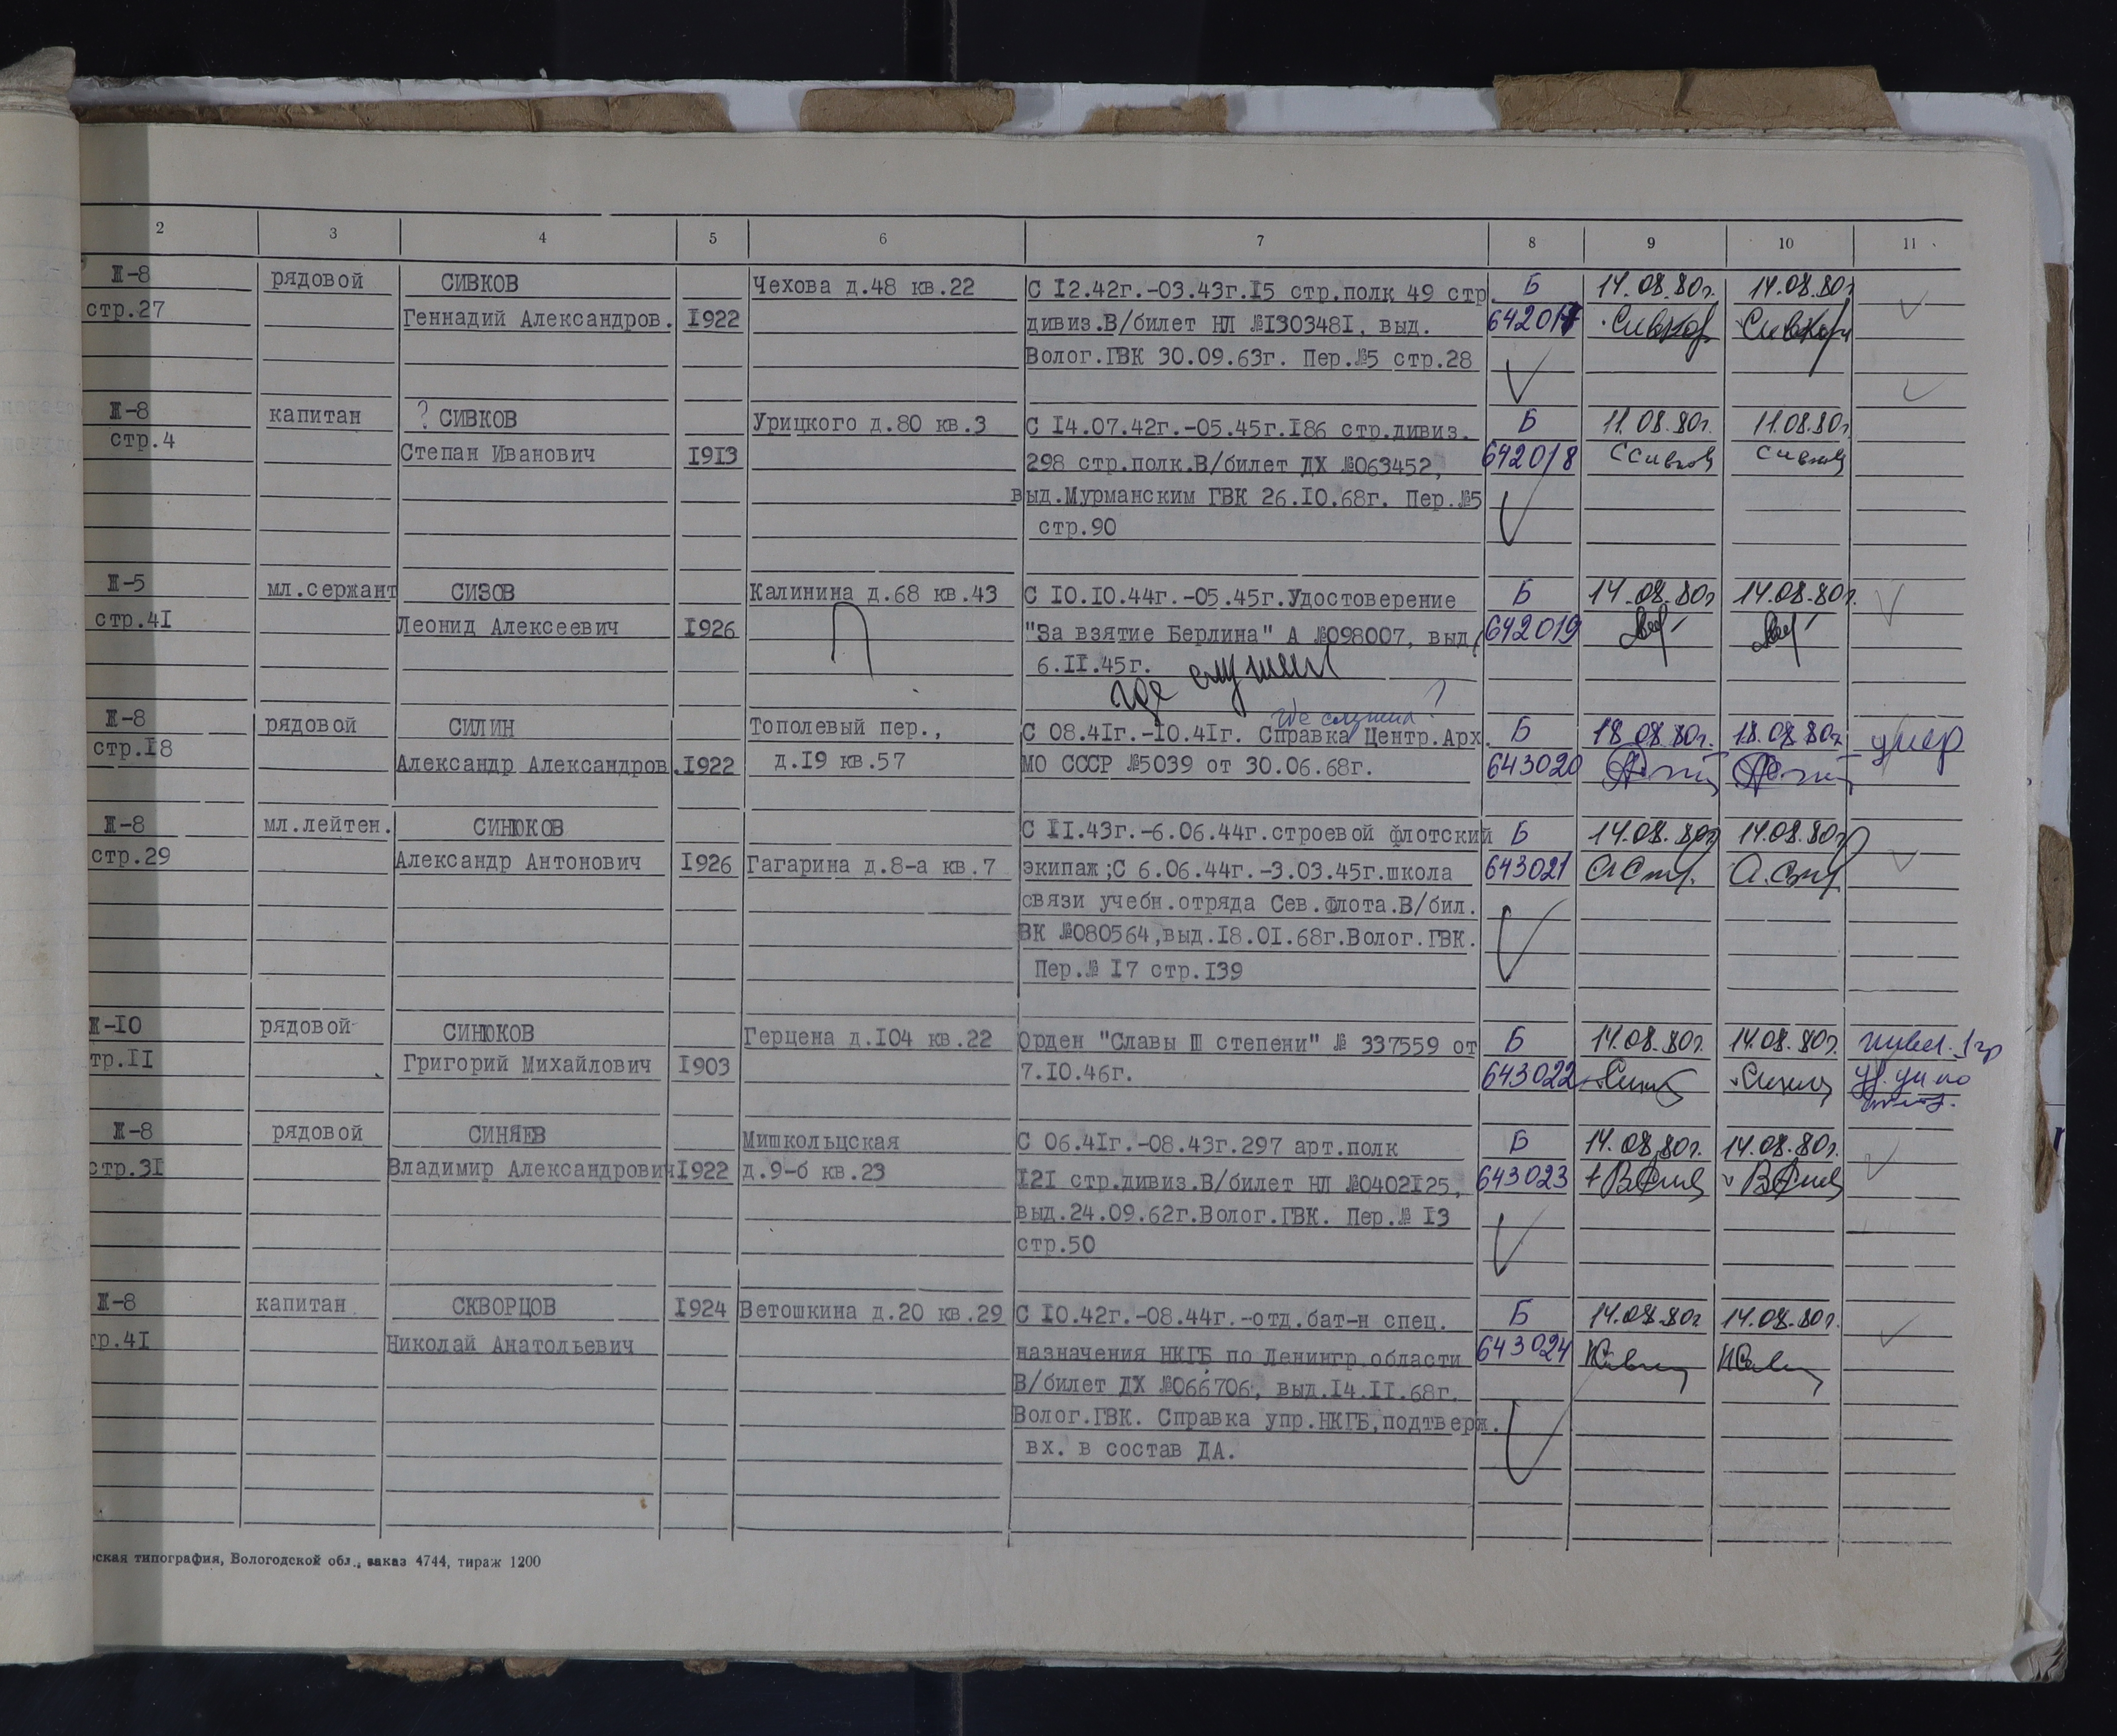 2 3 4 5 6 7 8 9 10 11
Ж-8 рядовой СИВКОВ Чехова д.48 кв.22 С 12.42г.-03.43г.15 стр.полк 49 стр. Б 14.08.80г. 14.08.80г
стр.27 Геннадий Александров. 1922 дивиз.В/билет НЛ №1303481, выд. 642017 Сивков Сивков
Волог.ГВК 30.09.63г. Пер.№5 стр.28
Ж-8 капитан ? СИВКОВ Урицкого д.80 кв.3 С 14.07.42г.-05.45г.186 стр.дивиз. Б 11.08.80г. 11.08.80г
стр.4 Степан Иванович 1913 298 стр.полк.В/билет ДХ №063452, 642018 ССивков Сивков
выд.Мурманским ГВК 26.10.68г. Пер.№5
стр.90
Ж-5 мл.сержант СИЗОВ Калинина д.68 кв.43 С 10.10.44г.-05.45г.Удостоверение Б 14.08.80г 14.08.80г.
стр.41 Леонид Алексеевич 1926 "За взятие Берлина" А №098007, выд. 642019
6.11.45г.
где служил
где служил ?
Ж-8 рядовой СИЛИН Тополевый пер., С 08.41г.-10.41г. Справка Центр.Арх. Б 18.08.80г. 18.08.80г умер
стр.18 Александр Александров. 1922 д.19 кв.57 МО СССР №5039 от 30.06.68г. 643020
Ж-8 мл.лейтен. СИНЮКОВ С 11.43г.-6.06.44г.строевой флотский Б 14.08.80г 14.08.80г
стр.29 Александр Антонович 1926 Гагарина д.8-а кв.7 экипаж;С 6.06.44г.-3.03.45г.школа 643021
связи учебн.отряда Сев.Флота.В/бил.
ВК №080564,выд.18.01.68г.Волог.ГВК.
Пер.№ 17 стр.139
Ж-10 рядовой СИНЮКОВ Герцена д.104 кв.22 Орден "Славы Ш степени" № 337559 от Б 14.08.80г. 14.08.80г. инвал. 1гр
тр.11 Григорий Михайлович 1903 7.10.46г. 643022
Ж-8 рядовой СИНЯЕВ Мишкольцская С 06.41г.-08.43г.297 арт.полк Б 14.08.80г. 14.08.80г.
стр.31 Владимир Александрович 1922 д.9-б кв.23 121 стр.дивиз.В/билет НЛ №0402125, 643023
выд.24.09.62г.Волог.ГВК. Пер.№ 13
стр.50
Ж-8 капитан СКВОРЦОВ 1924 Ветошкина д.20 кв.29 С 10.42г.-08.44г.-отд.бат-н спец. Б 14.08.80г 14.08.80г.
тр.41 Николай Анатольевич назначения НКГБ по Ленингр.области 643024
В/билет ДХ №066706, выд.14.11.68г.
Волог.ГВК. Справка упр.НКГБ,подтверж.
вх. в состав ДА.
ская типография, Вологодской обл., заказ 4744, тираж 1200